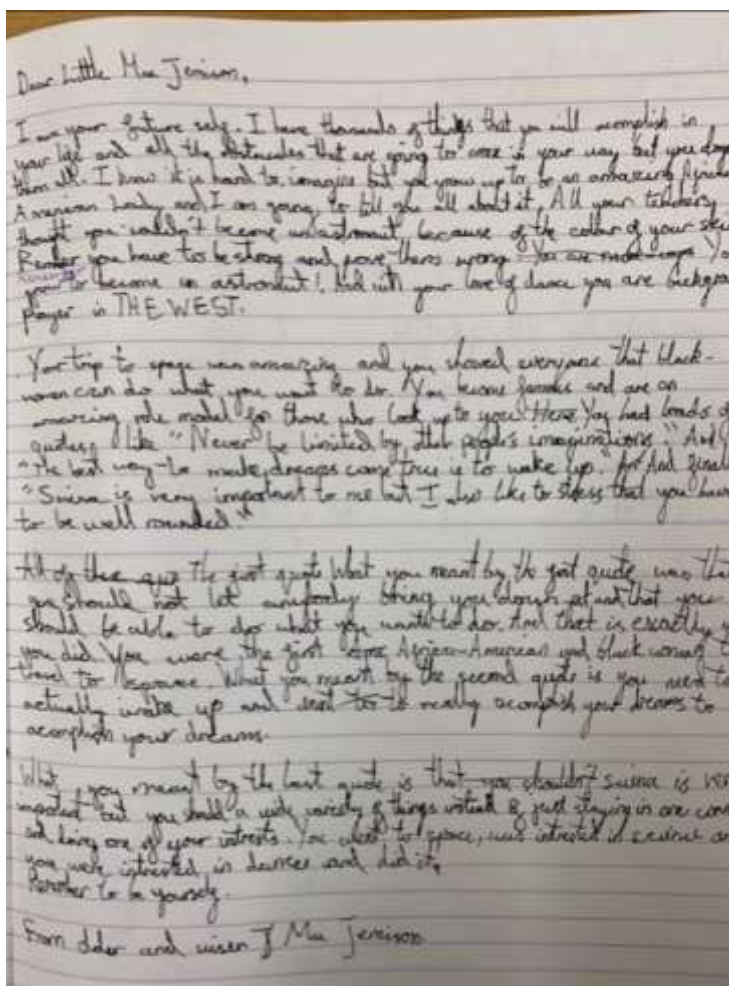 Dear Little Mae Jemison,
I am your future self. I have thousands of things that you will acomplish in
your life and all the obstacules that are going to come in your way but you dodge
them all. I know it is hard to imagine but you grow up to be an amazing African
American Lady and I am going to tell you all about it. All your teachers
thought you wouldn't become an astronaut because of the collar of your skin
Rember you have to be strong and prove them wrong. You are You
grow to become an astronaut! And with your love of dance you are backgrou
player in THE WEST.
Your trip to space was amazing and you showed everyone that black-
women can do what you want to do. You become famous and are an
amazing role model for those who look up to you. You had loads of
quotes like "Never be limited by other people's imaginations." And
"The best way to make dreams come true is to wake up." And final
"Sience is very important to me but I also like to stress that you have
to be well rounded."
All of the quo The first quote What you meant by the first quote was that
you should not let anybody bring you down and that you
should be able to do what you want to do. And that is exactly
you did. You were the first African-American and black woman t
travel to space. What you meant by the second quote is you need to
actually wake up and to really acomplish your dreams to
acomplish your dreams.
What you meant by the last quote is that you shouldn't sience is ver
important but you should a wide variety of things insted of just staying in one corn
and being one of your intrests. You went to space, was intrested in science an
you were intrested in dances and did it.
Rember to be yourself.
From older and wiser Mae Jemison